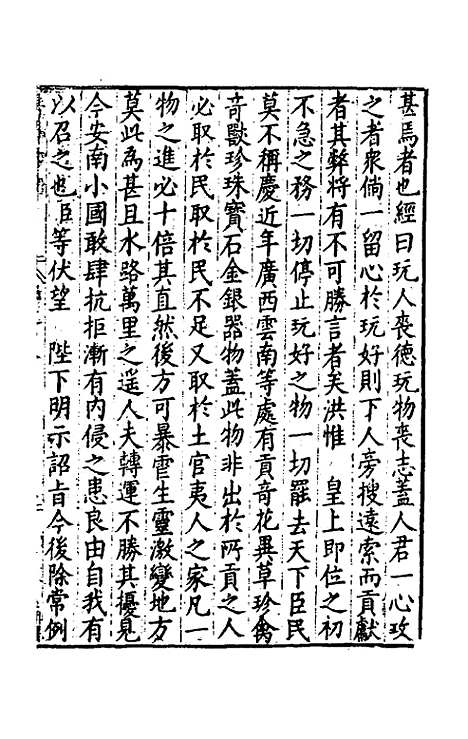 甚焉者也經曰玩人喪德玩物喪志蓋人君一心攻
之者衆倘一留心於玩好則下人旁搜遠索而貢獻
者其弊將有不可勝言者矣洪惟　皇上即位之初
不急之務一切停止玩好之物一切罷去天下臣民
莫不稱慶近年廣西雲南等處有貢奇花異草珍禽
奇獸珍珠寶石金銀器物蓋此物非出於所貢之人
必取於民取於民不足又取於土官夷人之家凡一
物之進必十倍其直然後方可暴雪生靈激變地方
莫此爲甚且水路萬里之遥人夫轉運不勝其擾見
今安南小國敢肆抗拒漸有內侵之患良由自我有
以召之也臣等伏望　陛下明示詔旨今後除常例